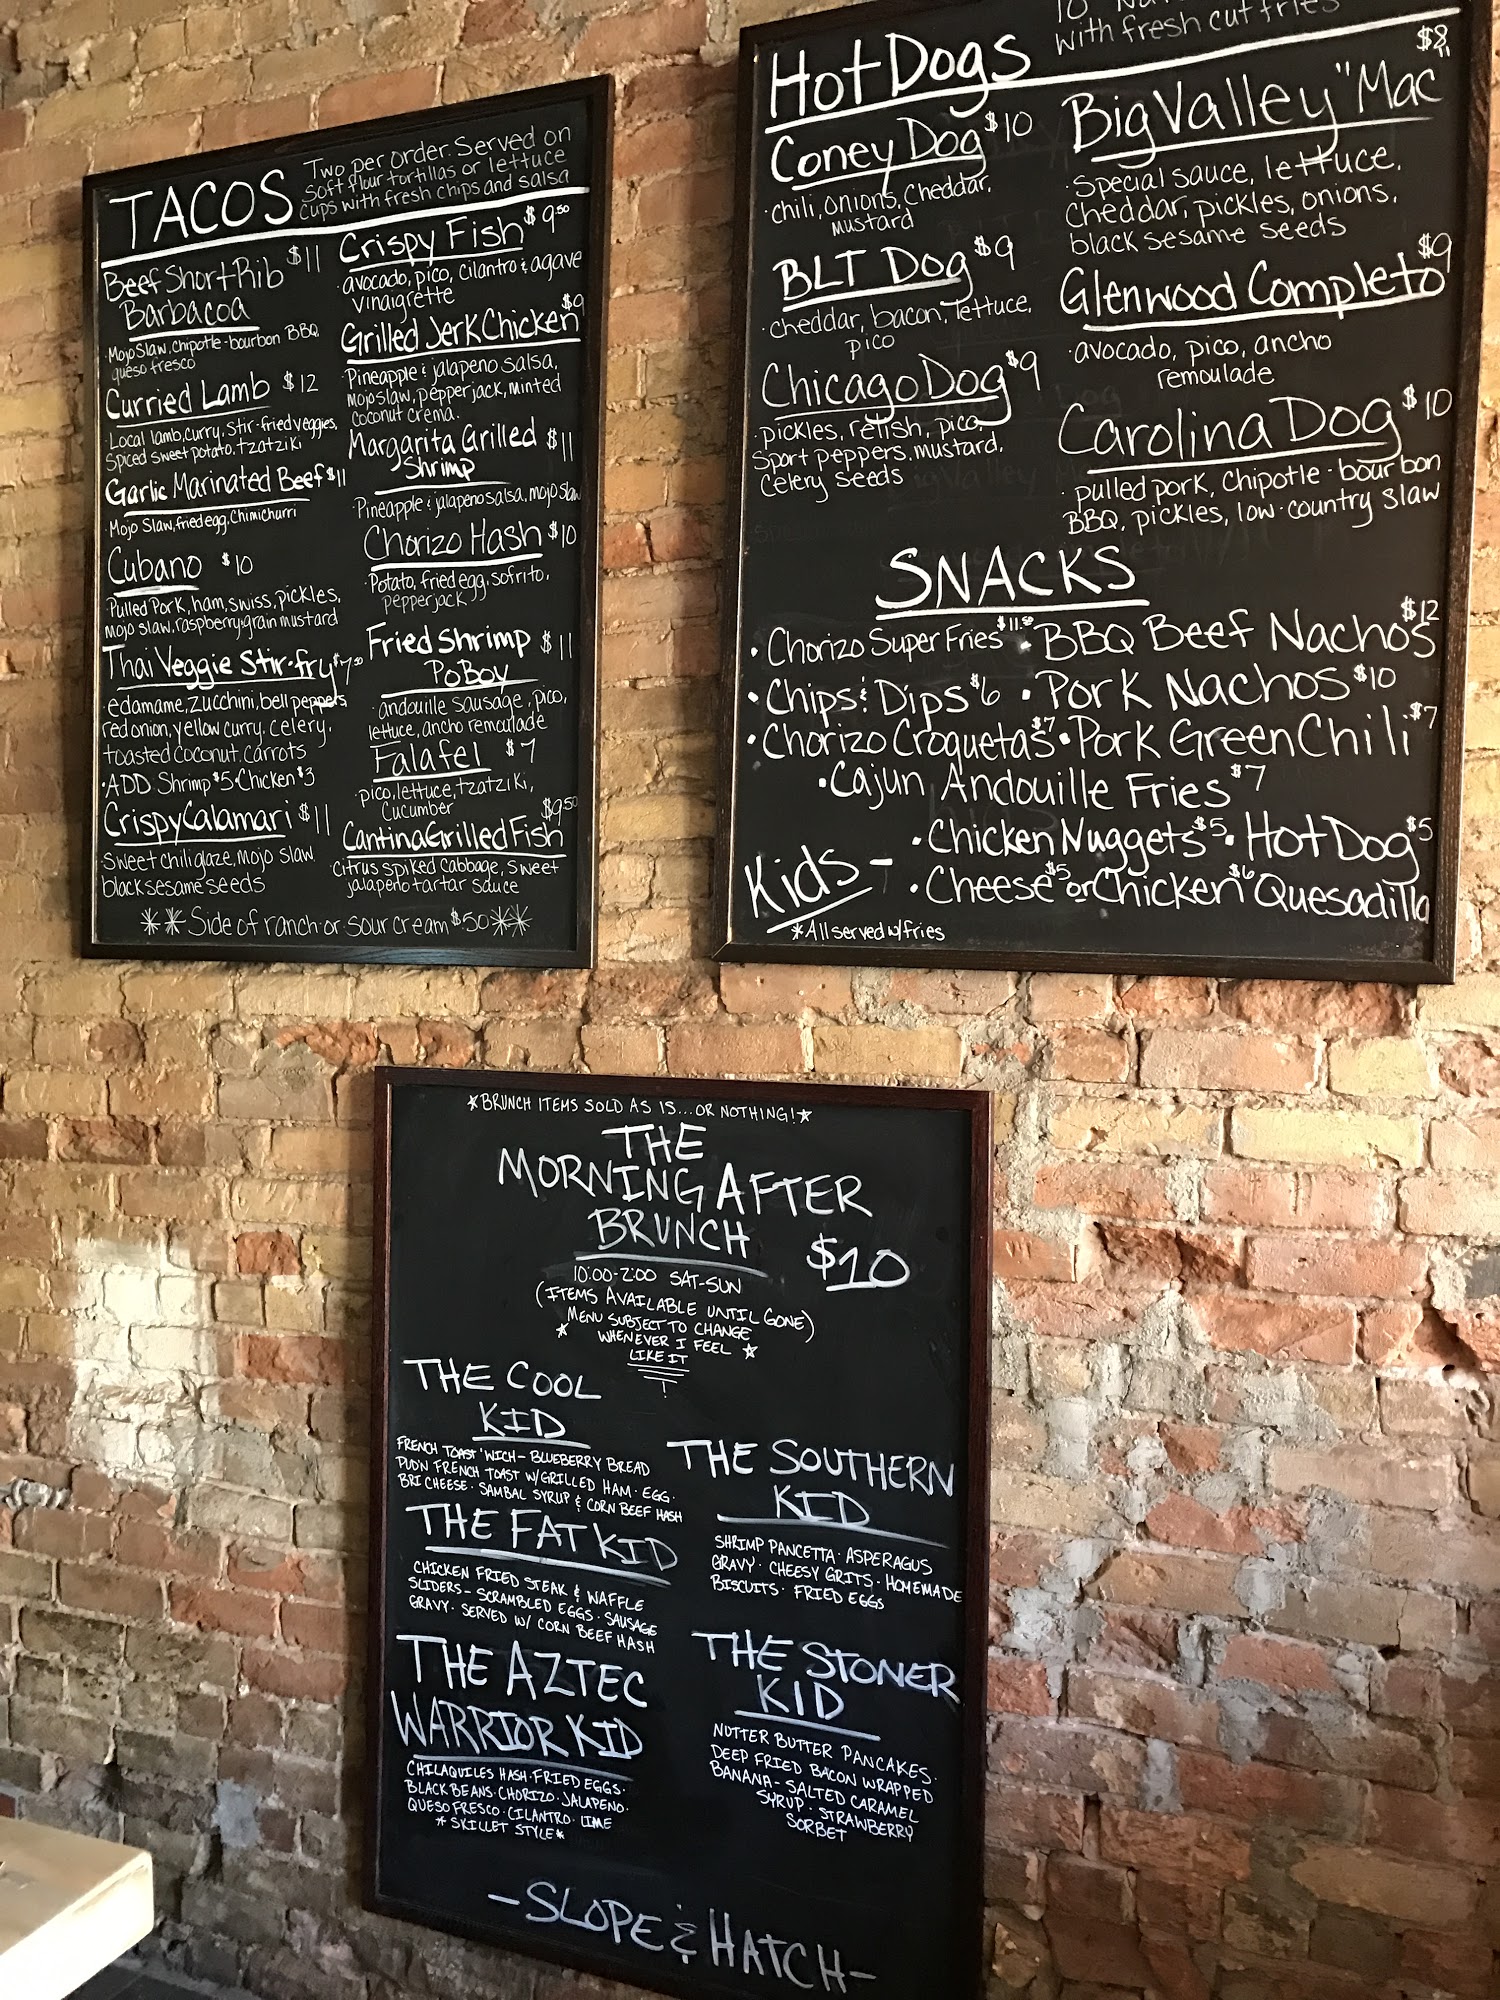 TACOS
Two per order. Served on
soft flour tortillas or lettuce
cups with fresh chips and salsa
Beef Short Rib $11
Barbacoa
·Mojo Slaw, chipotle-bourbon BBQ,
queso fresco
Curried Lamb $12
·Local lamb, curry, stir-fried veggies,
Spiced sweet potato, tzatziki
Garlic Marinated Beef $11
·Mojo Slaw, fried egg, Chimichurri
Cubano $10
·Pulled Pork, ham, swiss, pickles,
mojo slaw, raspberry-grain mustard
Thai Veggie Stir-fry $7.50
·edamame, zucchini, bell peppers,
red onion, yellow curry, celery,
toasted coconut, carrots
·ADD Shrimp $5 · Chicken $3
Crispy Calamari $11
·Sweet chili glaze, Mojo Slaw
black sesame seeds
Crispy Fish $9.50
·avocado, pico, cilantro & agave
vinaigrette
Grilled Jerk Chicken $9
·Pineapple & jalapeno salsa,
mojo slaw, pepperjack, minted
coconut crema.
Margarita Grilled $11
Shrimp
·Pineapple & jalapeno salsa, mojo slaw
Chorizo Hash $10
·Potato, fried egg, sofrito,
pepperjack
Fried Shrimp $11
PoBoy
·andouille sausage, pico,
lettuce, ancho remoulade
Falafel $7
·pico, lettuce, tzatziki,
Cucumber
Cantina Grilled Fish $9.50
·Citrus spiked Cabbage, sweet
jalapeno tartar sauce
** Side of ranch or sour cream $.50 **
Hot Dogs
with fresh cut fries
Coney Dog $10
·chili, onions, cheddar,
mustard
BLT Dog $9
·cheddar, bacon, lettuce,
pico
Chicago Dog $9
·pickles, relish, pico,
Sport peppers, mustard,
Celery seeds
Big Valley "Mac" $8
·Special sauce, lettuce,
Cheddar, pickles, onions,
black sesame seeds
Glenwood Completo $9
·avocado, pico, ancho
remoulade
Carolina Dog $10
·pulled pork, Chipotle-bourbon
BBQ, pickles, low-country slaw
SNACKS
·Chorizo Super Fries $11.50 ·BBQ Beef Nachos $12
·Chips & Dips $6 ·Pork Nachos $10
·Chorizo Croquetas $7 ·Pork Green Chili $7
·Cajun Andouille Fries $7
Kids- ·Chicken Nuggets $5 ·Hot Dog $5
·Cheese $5 or Chicken $6 Quesadilla
*All served w/fries
*BRUNCH ITEMS SOLD AS IS...OR NOTHING!*
THE
MORNING AFTER
BRUNCH $10
10:00-2:00 SAT-SUN
(ITEMS AVAILABLE UNTIL GONE)
MENU SUBJECT TO CHANGE
* WHENEVER I FEEL *
LIKE IT
THE COOL
KID
FRENCH TOAST 'WICH - BLUEBERRY BREAD
PUD'N FRENCH TOAST W/GRILLED HAM · EGG ·
BRI CHEESE · SAMBAL SYRUP & CORN BEEF HASH
THE FAT KID
CHICKEN FRIED STEAK & WAFFLE
SLIDERS - SCRAMBLED EGGS · SAUSAGE
GRAVY · SERVED W/ CORN BEEF HASH
THE AZTEC
WARRIOR KID
CHILAQUILES HASH · FRIED EGGS ·
BLACK BEANS · CHORIZO · JALAPENO ·
QUESO FRESCO · CILANTRO · LIME
*SKILLET STYLE*
THE SOUTHERN
KID
SHRIMP PANCETTA · ASPERAGUS
GRAVY · CHEESY GRITS · HOMEMADE
BISCUITS · FRIED EGGS
THE STONER
KID
NUTTER BUTTER PANCAKES ·
DEEP FRIED BACON WRAPPED
BANANA - SALTED CARAMEL
SYRUP · STRAWBERRY
SORBET
-SLOPE & HATCH-